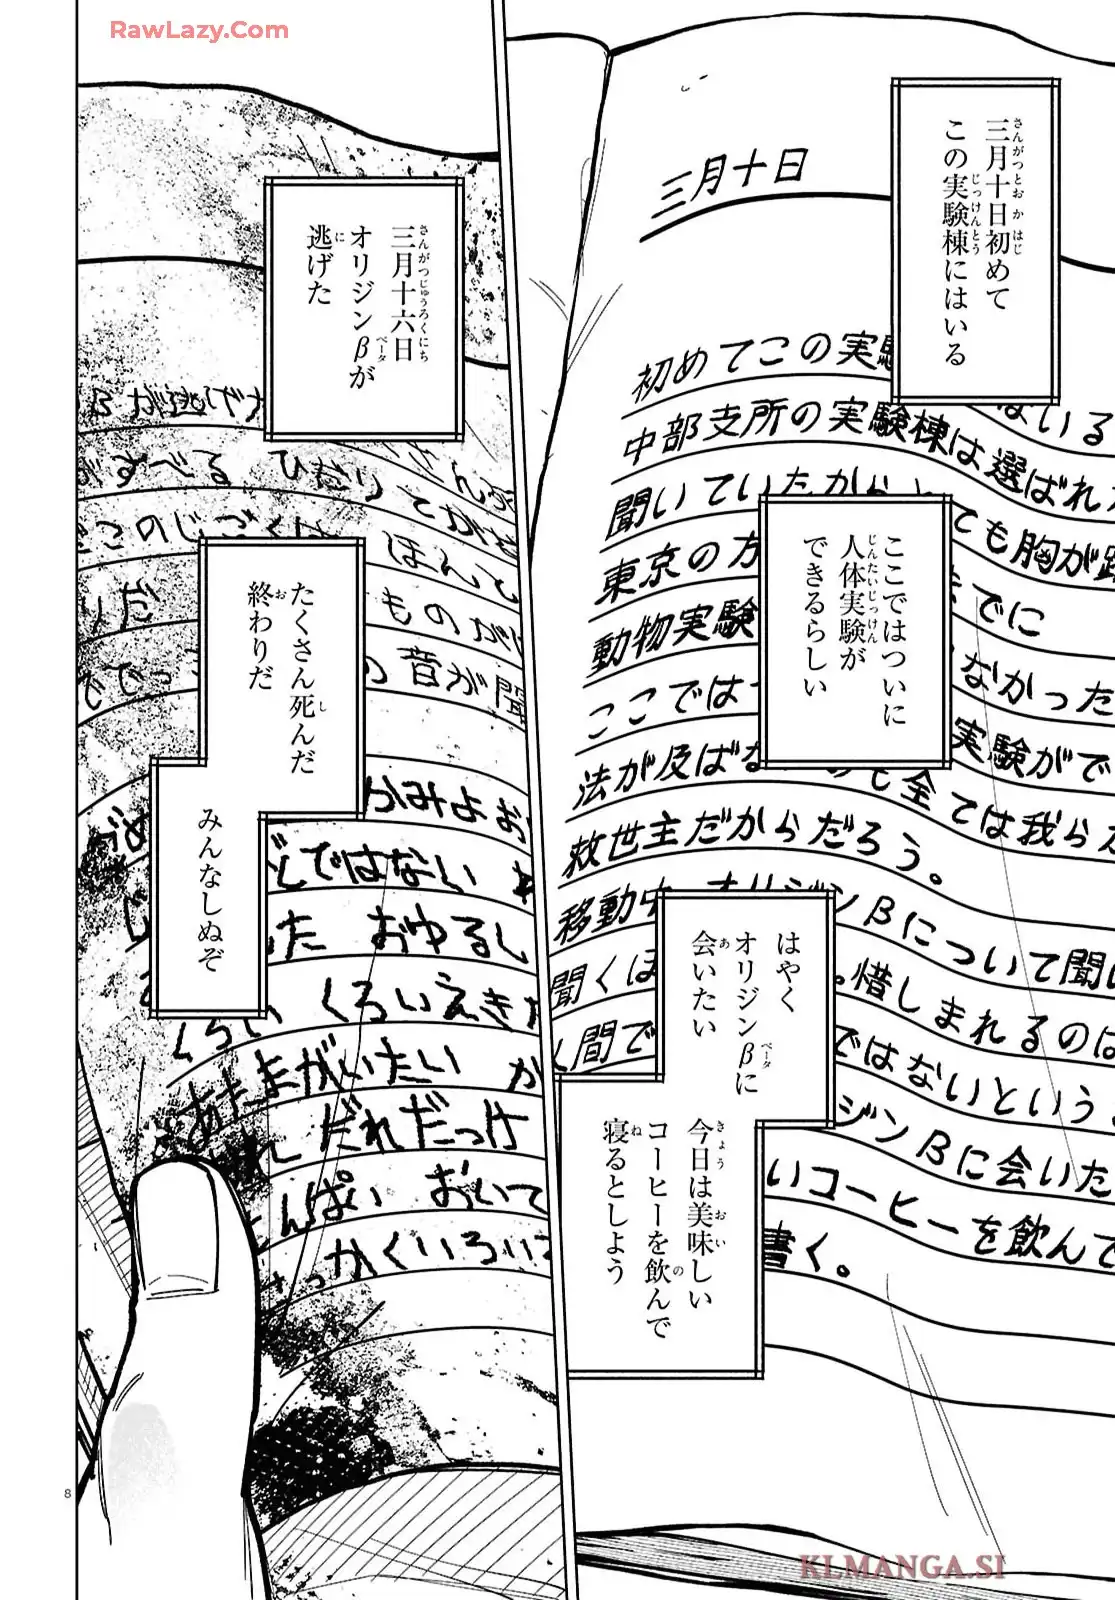 RawLazy.Com
三月十日初めて
この実験棟にはいる
ここではついに
人体実験が
できるらしい
はやく
オリジンβに
会いたい
今日は美味しい
コーヒーを飲んで
寝るとしよう
三月十日
初めてこの実験
はいる
中部支所の実験棟は選ばれ
聞いていたから
ても胸が
東京の方
までに
動物実験
なかった
ここでは
実験がで
法が及ばな
も全ては我ら
救世主だからだろう。
移動中 オリジンβについて聞
聞くほ
。惜しまれるのは
人間で
ではないという
ジンβに会いた
いコーヒーを飲んで
書く。
三月十六日
オリジンβが
逃げた
たくさん死んだ
終わりだ
みんなしぬぞ
βが逃げた
がすべる ひだりてがち
このじごくは ほんと
ものが
の音が聞
かみよお
とではない
た おゆるし
くろいえきた
あたまがいたい か
だれだっけ
んぱい おいて
っかくいろい
8
KLMANGA.SI